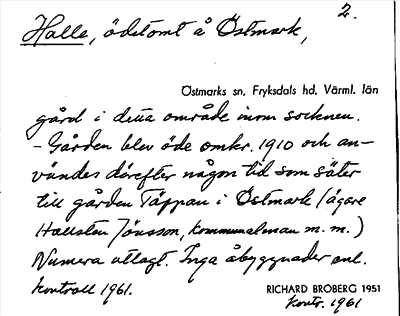 2.
Halla, ödetomt å Östmark,
Östmarks sn. Fryksdals hd. Värml. län
gård i detta område inom socknen.
- Gården blev öde omkr. 1910 och an-
vändes därefter någon tid som säter
till gården Täppan i Östmark (ägare
Hallsten Jonsson, kommunalman m. m.)
Numera utlagt. Inga åbyggnader enl.
kontroll 1961.
RICHARD BROBERG 1951
Kontr. 1961